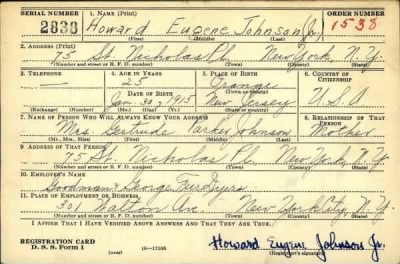 SERIAL NUMBER 1. NAME (Print) ORDER NUMBER
2838 Howard Eugene Johnson (Jr.) 1538
(First) (Middle) (Last)
2. ADDRESS (Print)
75 St. Nicholas Pl. New York N.Y.
(Number and street or R. F. D. number) (Town) (County) (State)
3. TELEPHONE 4. AGE IN YEARS 5. PLACE OF BIRTH 6. COUNTRY OF CITIZENSHIP
— 25 Orange
DATE OF BIRTH (Town or county)
Jan. 30, 1915 New Jersey U.S.A.
(Exchange) (Number) (Mo.) (Day) (Yr.) (State or country)
7. NAME OF PERSON WHO WILL ALWAYS KNOW YOUR ADDRESS 8. RELATIONSHIP OF THAT PERSON
Mrs. Gertrude Parker Johnson Mother
(Mr., Mrs., Miss) (First) (Middle) (Last)
9. ADDRESS OF THAT PERSON
75 St. Nicholas Pl. New York N.Y.
(Number and street or R. F. D. number) (Town) (County) (State)
10. EMPLOYER'S NAME
Goodman & George Fur Dyers
11. PLACE OF EMPLOYMENT OR BUSINESS
301 Walton Av. New York City, N.Y.
(Number and street or R. F. D. number) (Town) (County) (State)
I AFFIRM THAT I HAVE VERIFIED ABOVE ANSWERS AND THAT THEY ARE TRUE.
REGISTRATION CARD
D. S. S. Form 1 (over) 16—17105 Howard Eugene Johnson Jr.
(Registrant's signature)